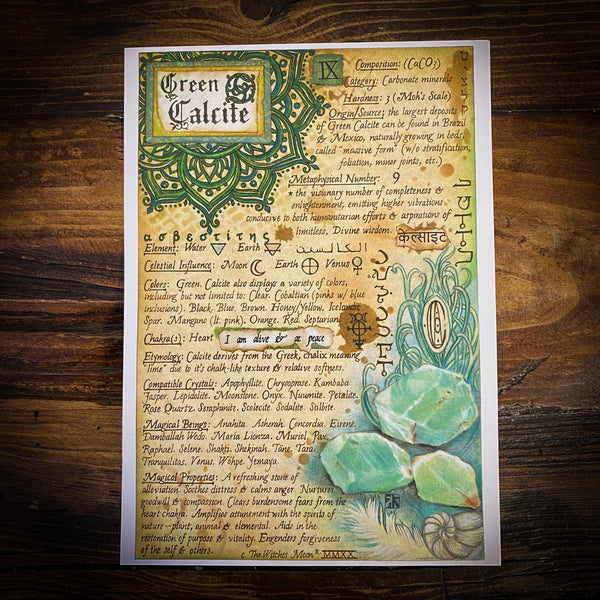 Green
Calcite
IX
Composition: (CaCO3)
Category: Carbonate minerals
Hardness: 3 (Moh's Scale)
Origin/Source: the largest deposits
of Green Calcite can be found in Brazil
& Mexico, naturally growing in beds,
called "massive form" (w/o stratification,
foliation, minor joints, etc.)
Metaphysical Number: 9
* the visionary number of completeness &
enlightenment, emitting higher vibrations
conducive to both humanitarian efforts & aspirations of
limitless, Divine wisdom.
ασβεστίτης
केल्साइट
Element: Water Earth الكالسيت
Celestial Influence: Moon Earth Venus
Colors: Green. Calcite also displays a variety of colors,
including but not limited to: Clear. Cobaltian (pinks w/ blue
inclusions). Black. Blue. Brown. Honey/Yellow. Icelandic
Spar. Mangano (lt. pink). Orange. Red. Septarian
Chakra(s): Heart
I am alive & at peace
Etymology: Calcite derives from the Greek, chalix meaning
"lime" due to it's chalk-like texture & relative softness.
Compatible Crystals: Apophyllite. Chrysoprase. Kambaba
Jasper. Lepidolite. Moonstone. Onyx. Nuumite. Petalite.
Rose Quartz. Seraphinite. Scolecite. Sodalite. Stilbite
Magical Beings: Anahita. Atherah. Concordia. Eirene.
Damballah Wédo. María Lionza. Muriel. Pax.
Raphael. Selene. Shakti. Shekinah. Tane. Tara.
Tranquilitas. Venus. Wohpe. Yemaya.
Magical Properties: A refreshing stone of
alleviation. Soothes distress & calms anger. Nurtures
goodwill & compassion. Clears burdensome fears from the
heart chakra. Amplifies attunement with the spirits of
nature – plant, animal & elemental. Aids in the
restoration of purpose & vitality. Engenders forgiveness
of the self & others.
© The Witches Moon® MMXX